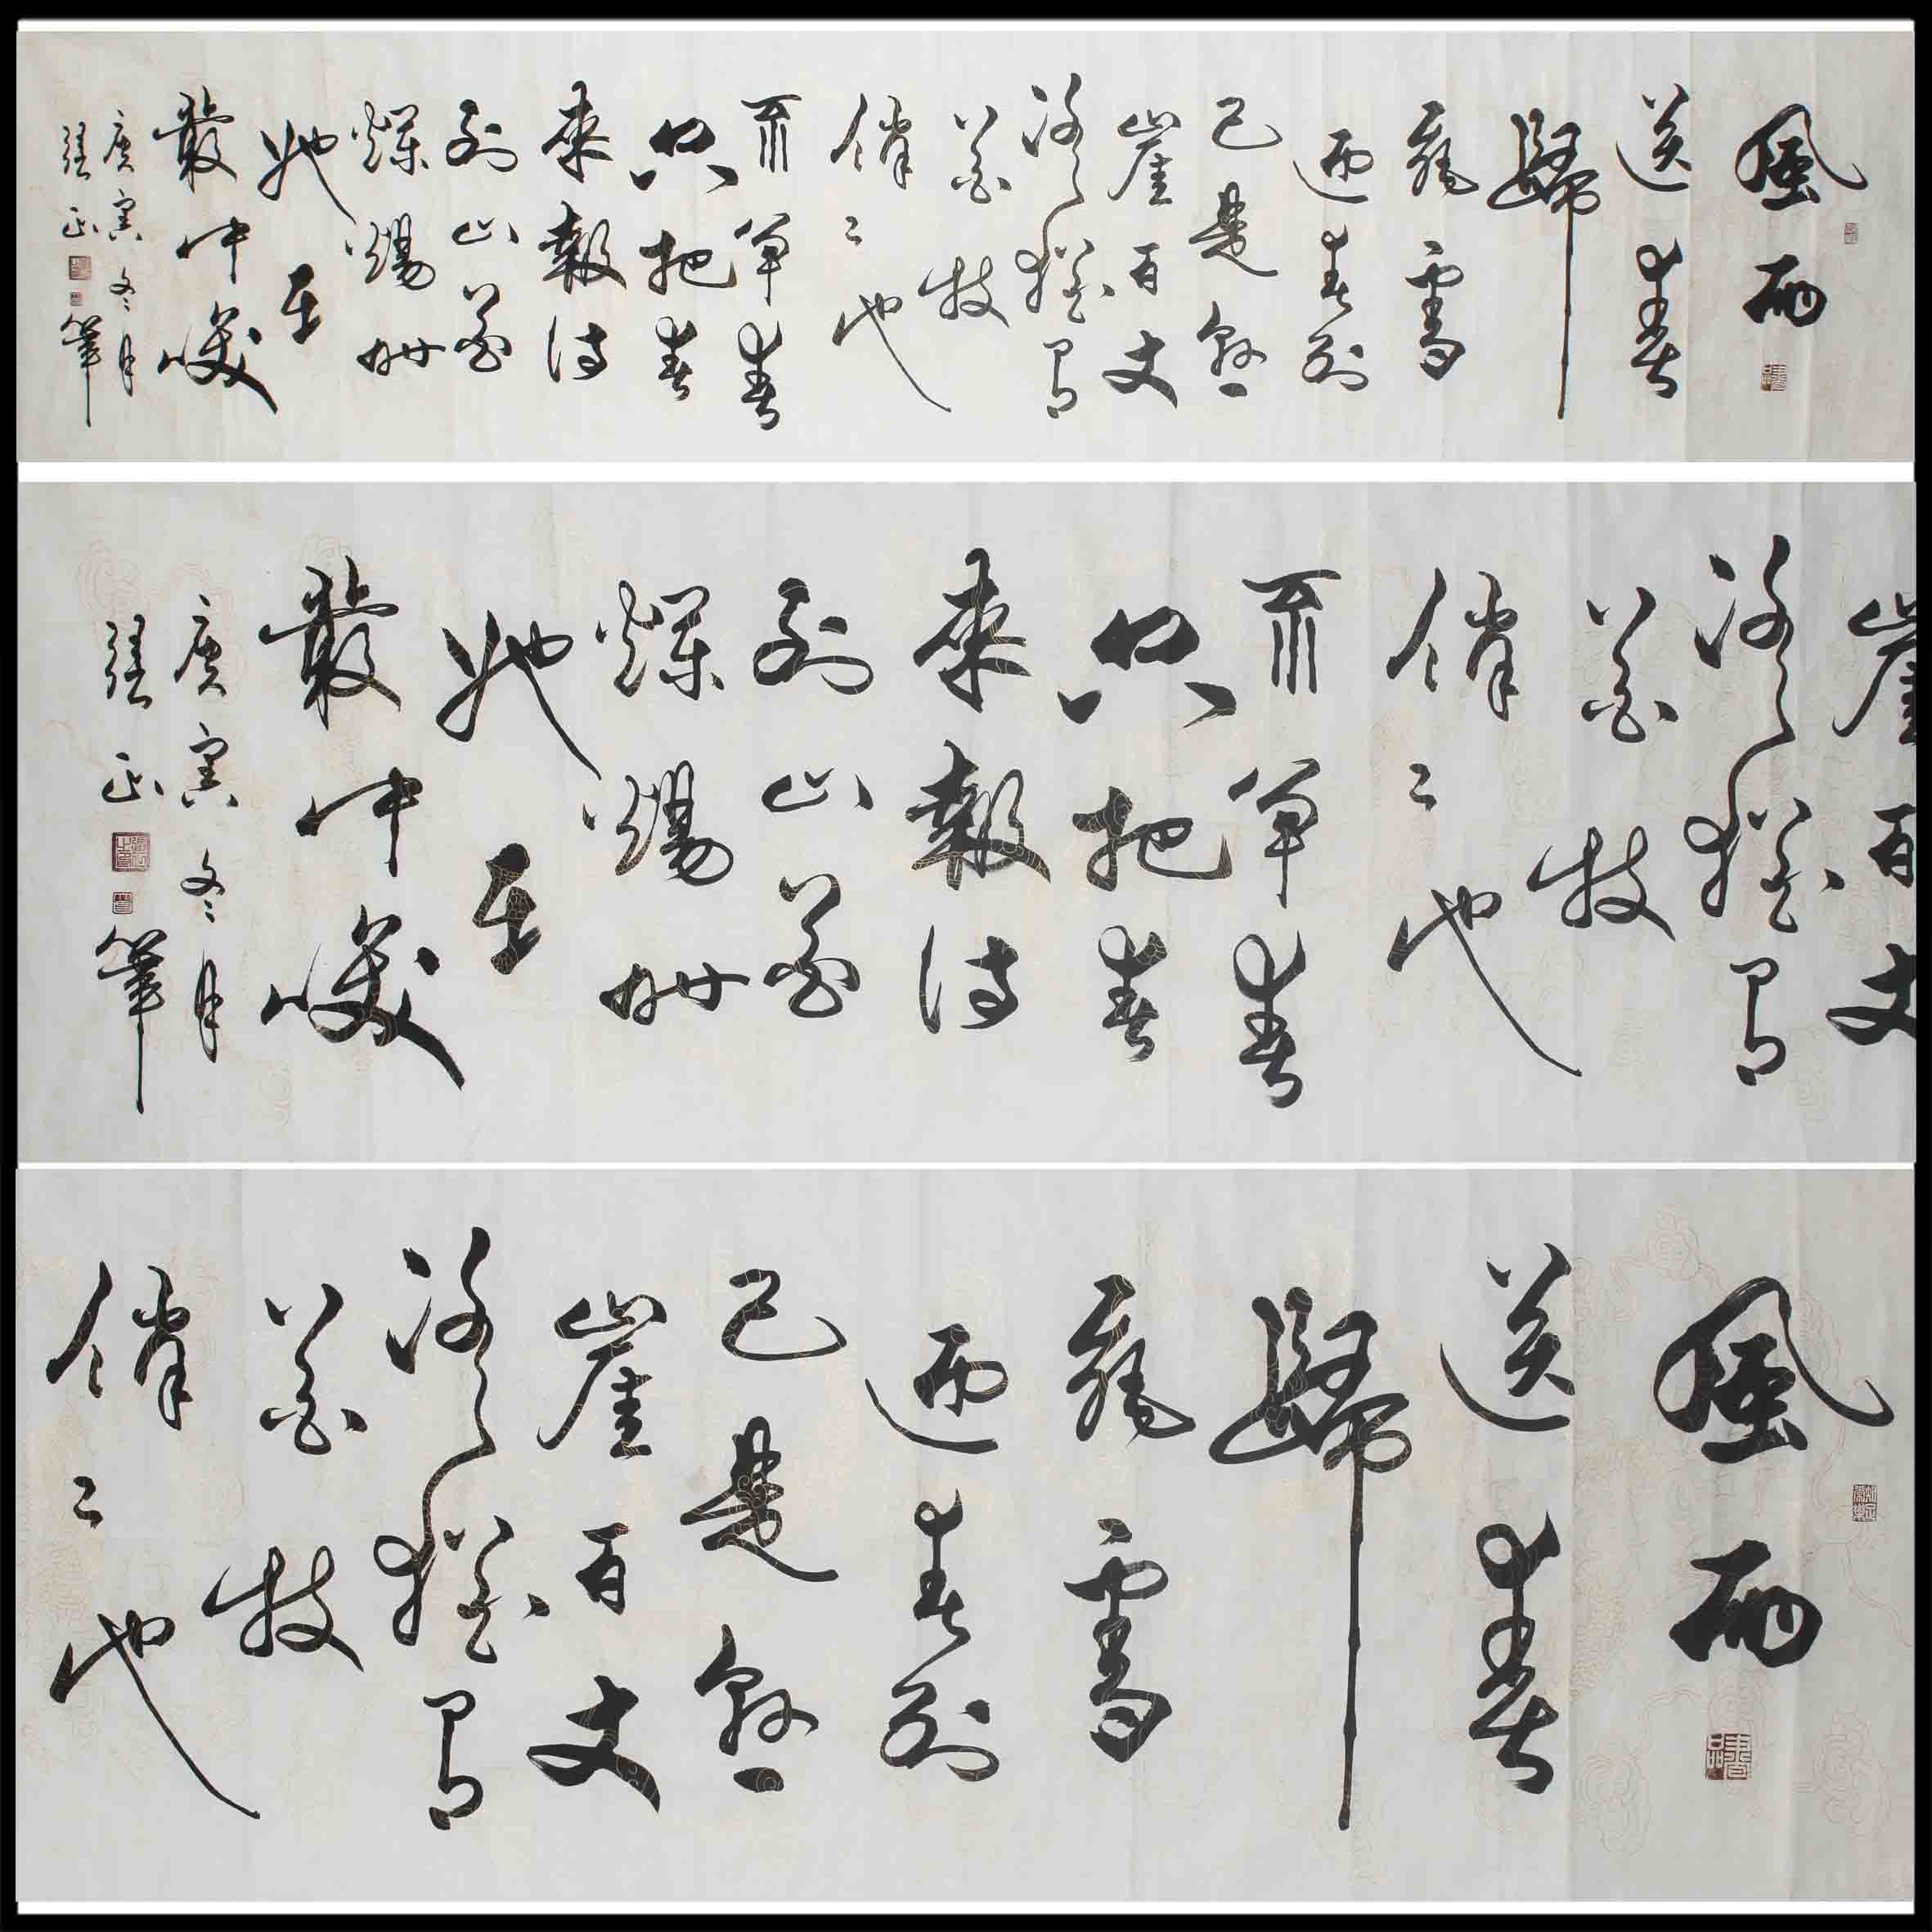 風雨
送春
歸
飛雪
迎春到
已是懸
崖百丈
冰猶有
花枝
俏〻也
不爭春
只把春
來報待
到山花
爛熳時
她在
叢中笑
庚寅冬月
張正筆
崖百丈
冰猶有
花枝
俏〻也
不爭春
只把春
來報待
到山花
爛熳時
她在
叢中笑
庚寅冬月
張正筆
風雨
送春
歸
飛雪
迎春到
已是懸
崖百丈
冰猶有
花枝
俏〻也